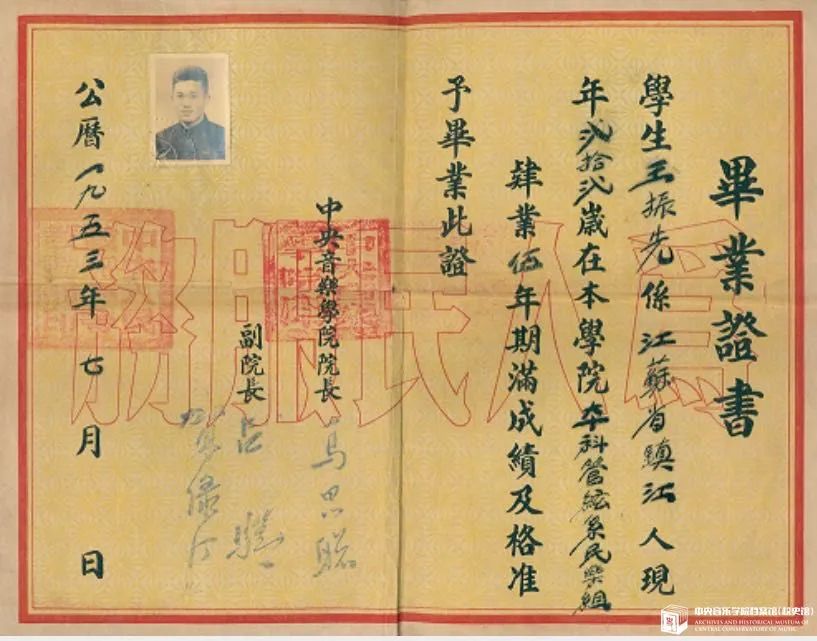 畢業證書
學生王振先係江蘇省鎮江人現
年弍拾弍歲在本學院本科管絃系民樂組
肄業伍年期滿成績及格准
予畢業此證
中央音樂學院院長 馬思聰
副院長 呂驥
公曆一九五三年七月 日
爲人民服務
中央音乐学院档案馆(校史馆)
ARCHIVES AND HISTORICAL MUSEUM OF
CENTRAL CONSERVATORY OF MUSIC